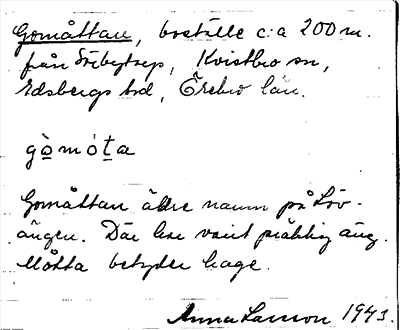 Gomåttan, boställe c:a 200 m.
från Sörbytorp, Kvistbro sn,
Edsbergs hd, Örebro län.
gòmóta
Gomåttan äldre namn på Löv-
ängen. Där har varit präktig äng.
Måtta betyder hage.
Anna Larsson 1943.